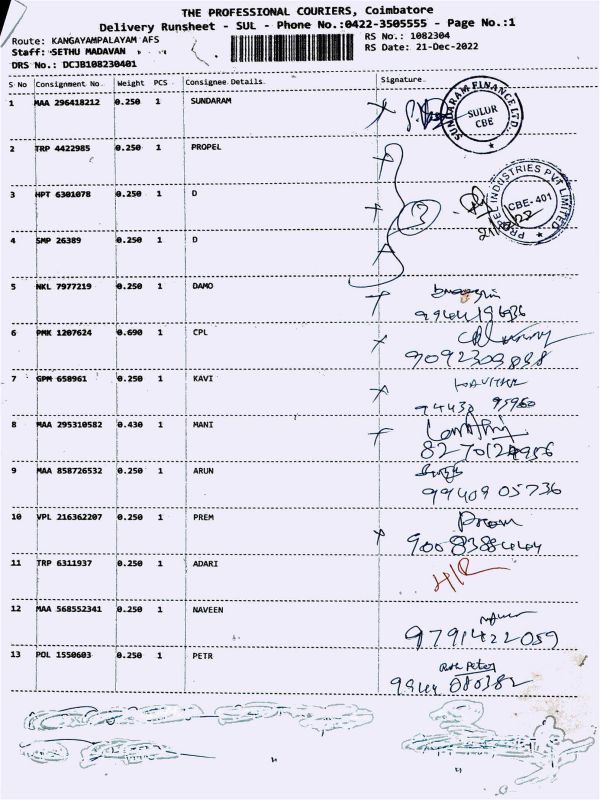 THE PROFESSIONAL COURIERS, Coimbatore
Delivery Runsheet - SUL - Phone No.:0422-3505555 - Page No.:1
Route: KANGAYAMPALAYAM AFS RS No.: 1082304
Staff: SETHU MADAVAN RS Date: 21-Dec-2022
DRS No.: DCJB108230401
S No Consignment No Weight PCS Consignee Details Signature
1 MAA 296418212 0.250 1 SUNDARAM
SUNDARAM FINANCE LTD.
SULUR
CBE
2 TRP 4422985 0.250 1 PROPEL
3 HPT 6301078 0.250 1 D
3
PROPEL INDUSTRIES PVT LIMITED
CBE-401
4 SMP 26389 0.250 1 D
5 NKL 7977219 0.250 1 DAMO
6 PMK 1207624 0.690 1 CPL
9092309898
7 GPM 658961 0.250 1 KAVI
KAVITHA
94430 95960
8 MAA 295310582 0.430 1 MANI
9 MAA 858726532 0.250 1 ARUN
99409 05736
10 VPL 216362207 0.250 1 PREM
Prem
11 TRP 6311937 0.250 1 ADARI
12 MAA 568552341 0.250 1 NAVEEN
9791422059
13 POL 1550603 0.250 1 PETR
Peter